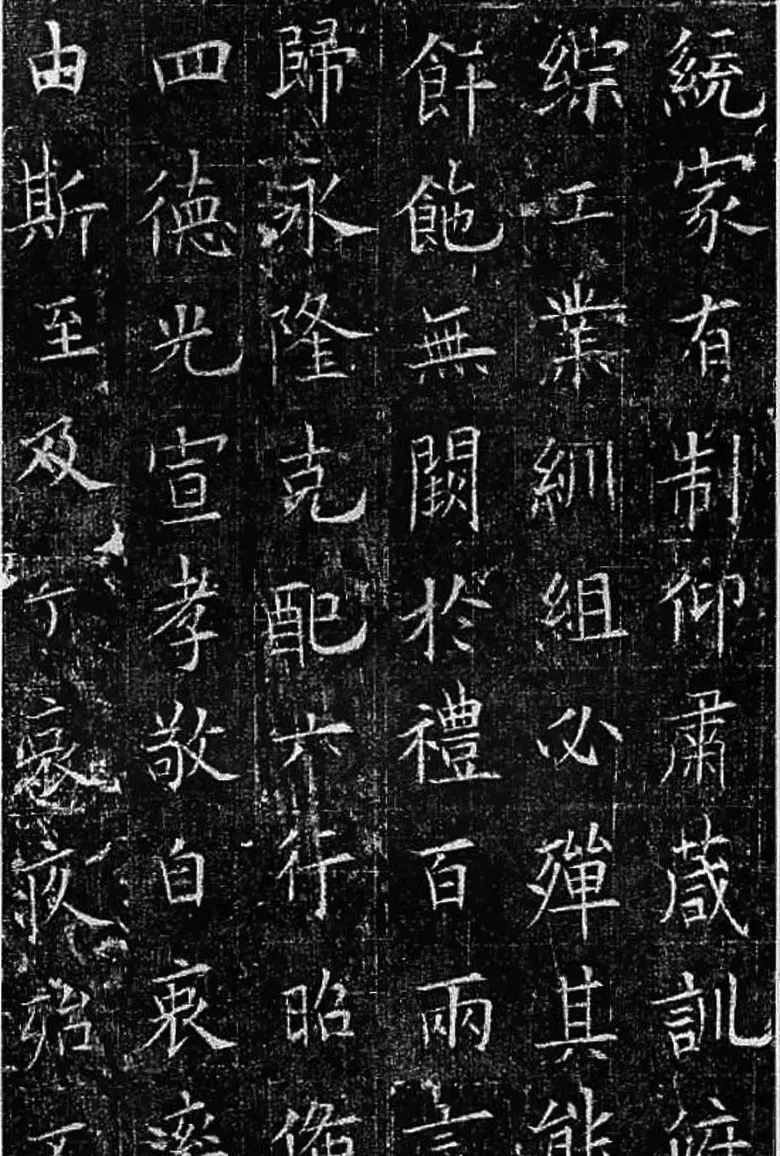 統家有制仰肅葴訓
綜工業紃組必殫其能
餅飿無闕於禮百兩言
歸永隆克配六行昭備
四德光宣孝敬自衷率
由斯至及丁衰疚殆